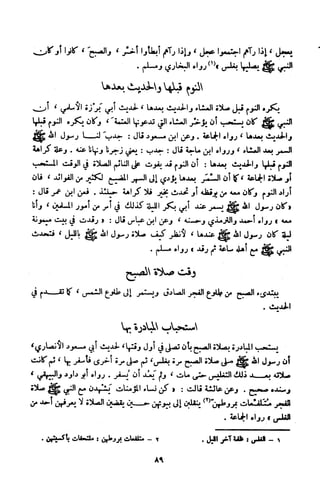 يعجل ، إذا رآهم اجتمعوا عجل ، وإذا رآهم أبطأوا أخر ، والصبح ، كانوا أو كان
النبي ﷺ يصليها بغلس (١) رواه البخاري ومسلم .
النوم قبلها والحديث بعدها
يكره النوم قبل صلاة العشاء والحديث بعدها ، لحديث أبي برزة الأسلمي ، أن
النبي ﷺ كان يستحب أن يؤخر العشاء التي تدعونها العتمة ، وكان يكره النوم قبلها
والحديث بعدها ، رواه الجماعة . وعن ابن مسعود قال : جدب لنا رسول الله ﷺ
السمر بعد العشاء ، ورواه ابن ماجة قال : جدب : يعني زجرنا ونهانا عنه . وعلة كراهة
النوم قبلها والحديث بعدها : أن النوم قد يفوت على النائم الصلاة في الوقت المستحب
أو صلاة الجماعة ، كما أن السمر بعدها يؤدي إلى السهر المضيع لكثير من الفوائد ، فان
أراد النوم وكان معه من يوقظه أو تحدث بخير فلا كراهة حينئذ . فعن ابن عمر قال :
« كان رسول الله ﷺ يسمر عند أبي بكر الليلة كذلك في أمر من أمور المسلمين ، وأنا
معه » رواه أحمد والترمذي وحسنه ، وعن ابن عباس قال : « رقدت في بيت ميمونة
ليلة كان رسول الله ﷺ عندها ، لأنظر كيف صلاة رسول الله ﷺ بالليل ، فتحدث
النبي ﷺ مع أهله ساعة ثم رقد » رواه مسلم .
وقت صلاة الصبح
يبتدىء الصبح من طلوع الفجر الصادق ويستمر إلى طلوع الشمس ، كما تقدم في
الحديث .
استحباب المبادرة بها
يستحب المبادرة بصلاة الصبح بأن تصلى في أول وقتها ، لحديث أبي مسعود الأنصاري ،
أن رسول الله ﷺ صلى صلاة الصبح مرة بغلس ، ثم صلى مرة أخرى فأسفر بها ، ثم كانت
صلاته بعد ذلك التغليس حتى مات ، ولم يعد أن يسفر . رواه أبو داود والبيهقي ،
وسنده صحيح . وعن عائشة قالت : « كن نساء المؤمنات يشهدن مع النبي ﷺ صلاة
الفجر متلفعات بمروطهن (٢) ينقلبن إلى بيوتهن حين يقضين الصلاة لا يعرفهن أحد من
الغلس » رواه الجماعة .
١ – الغلس : ظلمة آخر الليل . ٢ – متلفعات بمروطهن : ملتحفات بأكسيتهن .
٨٩